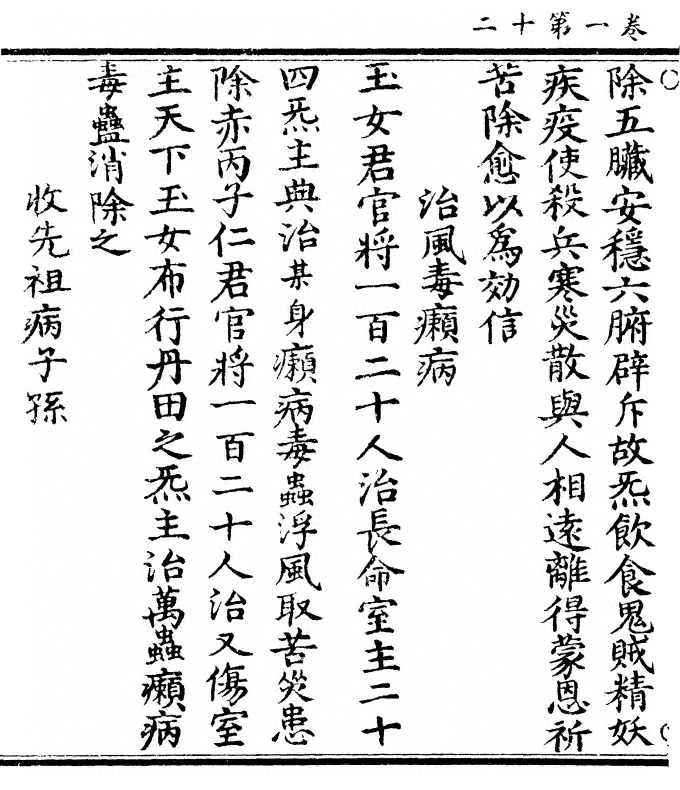 卷一第十二
除五臟安穩六腑辟斥故炁飲食鬼賊精妖
疾疫使殺兵寒災散與人相遠離得蒙恩祈
苦除愈以爲効信
治風毒癩病
玉女君官將一百二十人治長命室主二十
四炁主典治某身癩病毒蟲浮風取苦災患
除赤丙子仁君官將一百二十人治又傷室
主天下玉女布行丹田之炁主治萬蟲癩病
毒蠱消除之
收先祖病子孫